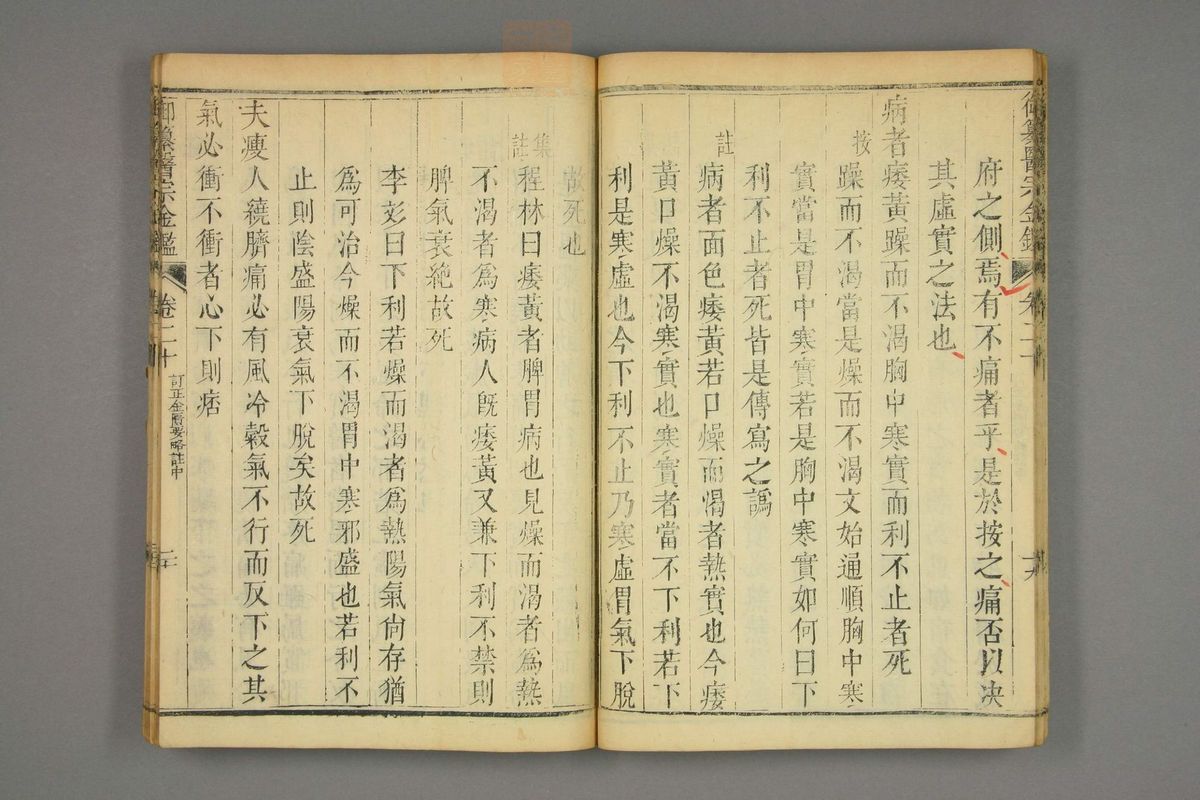 御纂醫宗金鑑 卷二十 十九
府之側焉有不痛者乎是於按之痛否以決
其虛實之法也
病者痿黃躁而不渴胸中寒實而利不止者死
按
躁而不渴當是燥而不渴文始通順胸中寒
實當是胃中寒實若是胸中寒實如何曰下
利不止者死皆是傳寫之譌
註
病者面色痿黃若口燥而渴者熱實也今痿
黃口燥不渴寒實也寒實者當不下利若下
利是寒虛也今下利不止乃寒虛胃氣下脫
故死也
集註
程林曰痿黃者脾胃病也見燥而渴者爲熱
不渴者爲寒病人旣痿黃又兼下利不禁則
脾氣衰絶故死
李彣曰下利若燥而渴者爲熱陽氣尙存猶
爲可治今燥而不渴胃中寒邪盛也若利不
止則陰盛陽衰氣下脫矣故死
夫瘦人繞臍痛必有風冷穀氣不行而反下之其
氣必衝不衝者心下則痞
御纂醫宗金鑑 卷二十 訂正金匱要略註中